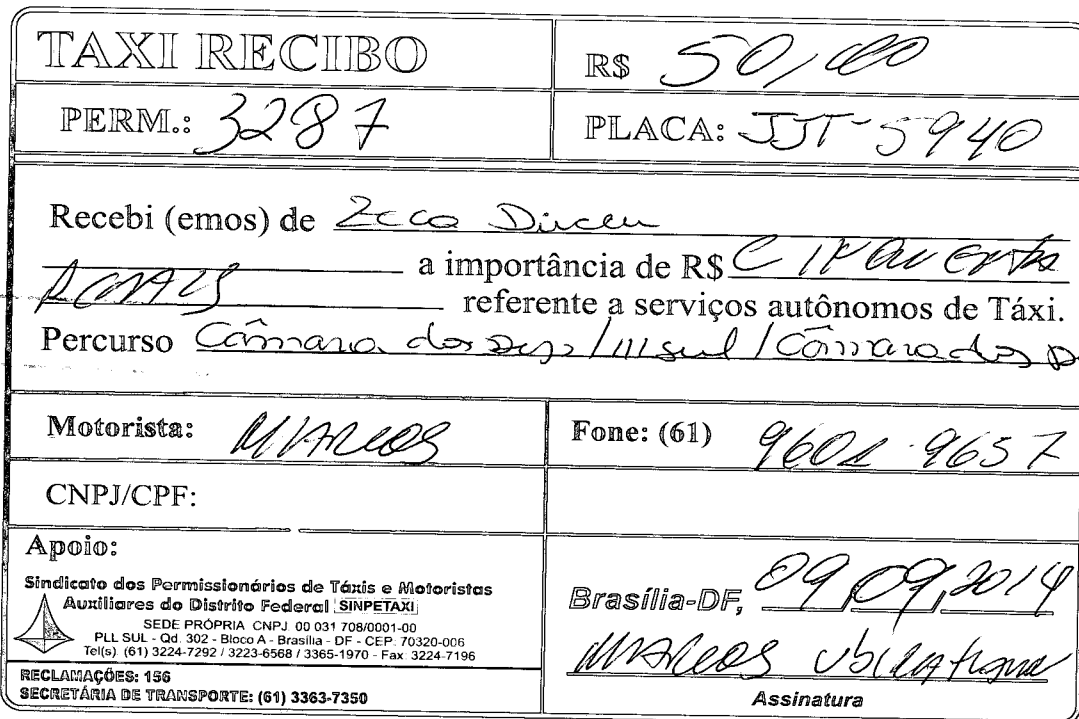 TAXI RECIBO
R$ 50,00
PERM.: 3287
PLACA: JJT-5940
Recebi (emos) de Zeca Dirceu
a importância de R$ Cinquenta
Reais referente a serviços autônomos de Táxi.
Percurso Câmara dos Dep / Lil sul / Câmara dos D
Motorista: MARCOS
Fone: (61) 9601-9657
CNPJ/CPF:
Apoio:
Sindicato dos Permissionários de Táxis e Motoristas
Auxiliares do Distrito Federal SINPETAXI
SEDE PRÓPRIA CNPJ 00 031 708/0001-00
PLL SUL - Qd. 302 - Bloco A - Brasília - DF - CEP: 70320-006
Tel(s). (61) 3224-7292 / 3223-6568 / 3365-1970 - Fax: 3224-7196
RECLAMAÇÕES: 156
SECRETÁRIA DE TRANSPORTE: (61) 3363-7350
Brasília-DF, 09,09,2014
MARCOS Ubiratan
Assinatura